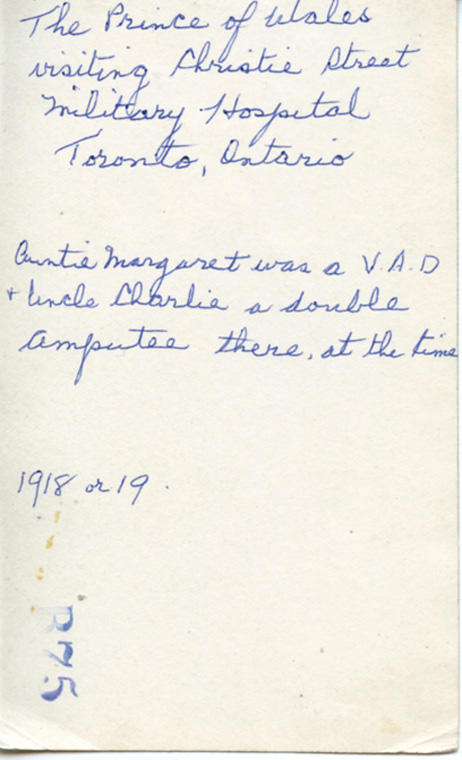 The Prince of Wales
visiting Christie Street
Military Hospital
Toronto, Ontario
Auntie Margaret was a V.A.D
+ Uncle Charlie a double
amputee there, at the time
1918 or 19.
B75